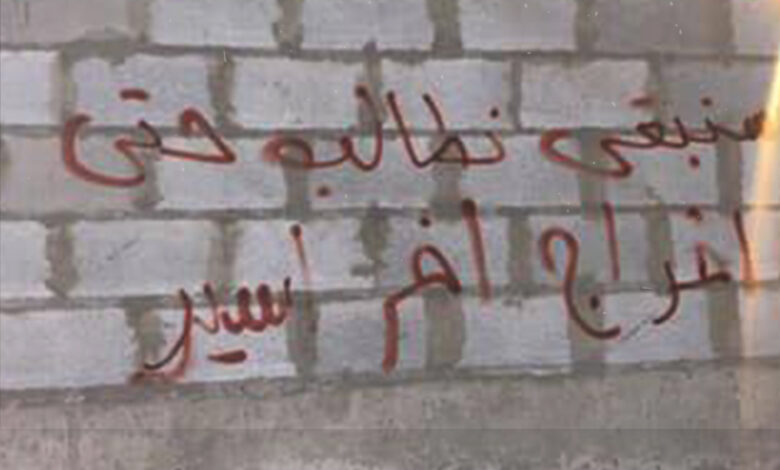 سنبقى نطالب حتى
اخراج اخر أسير